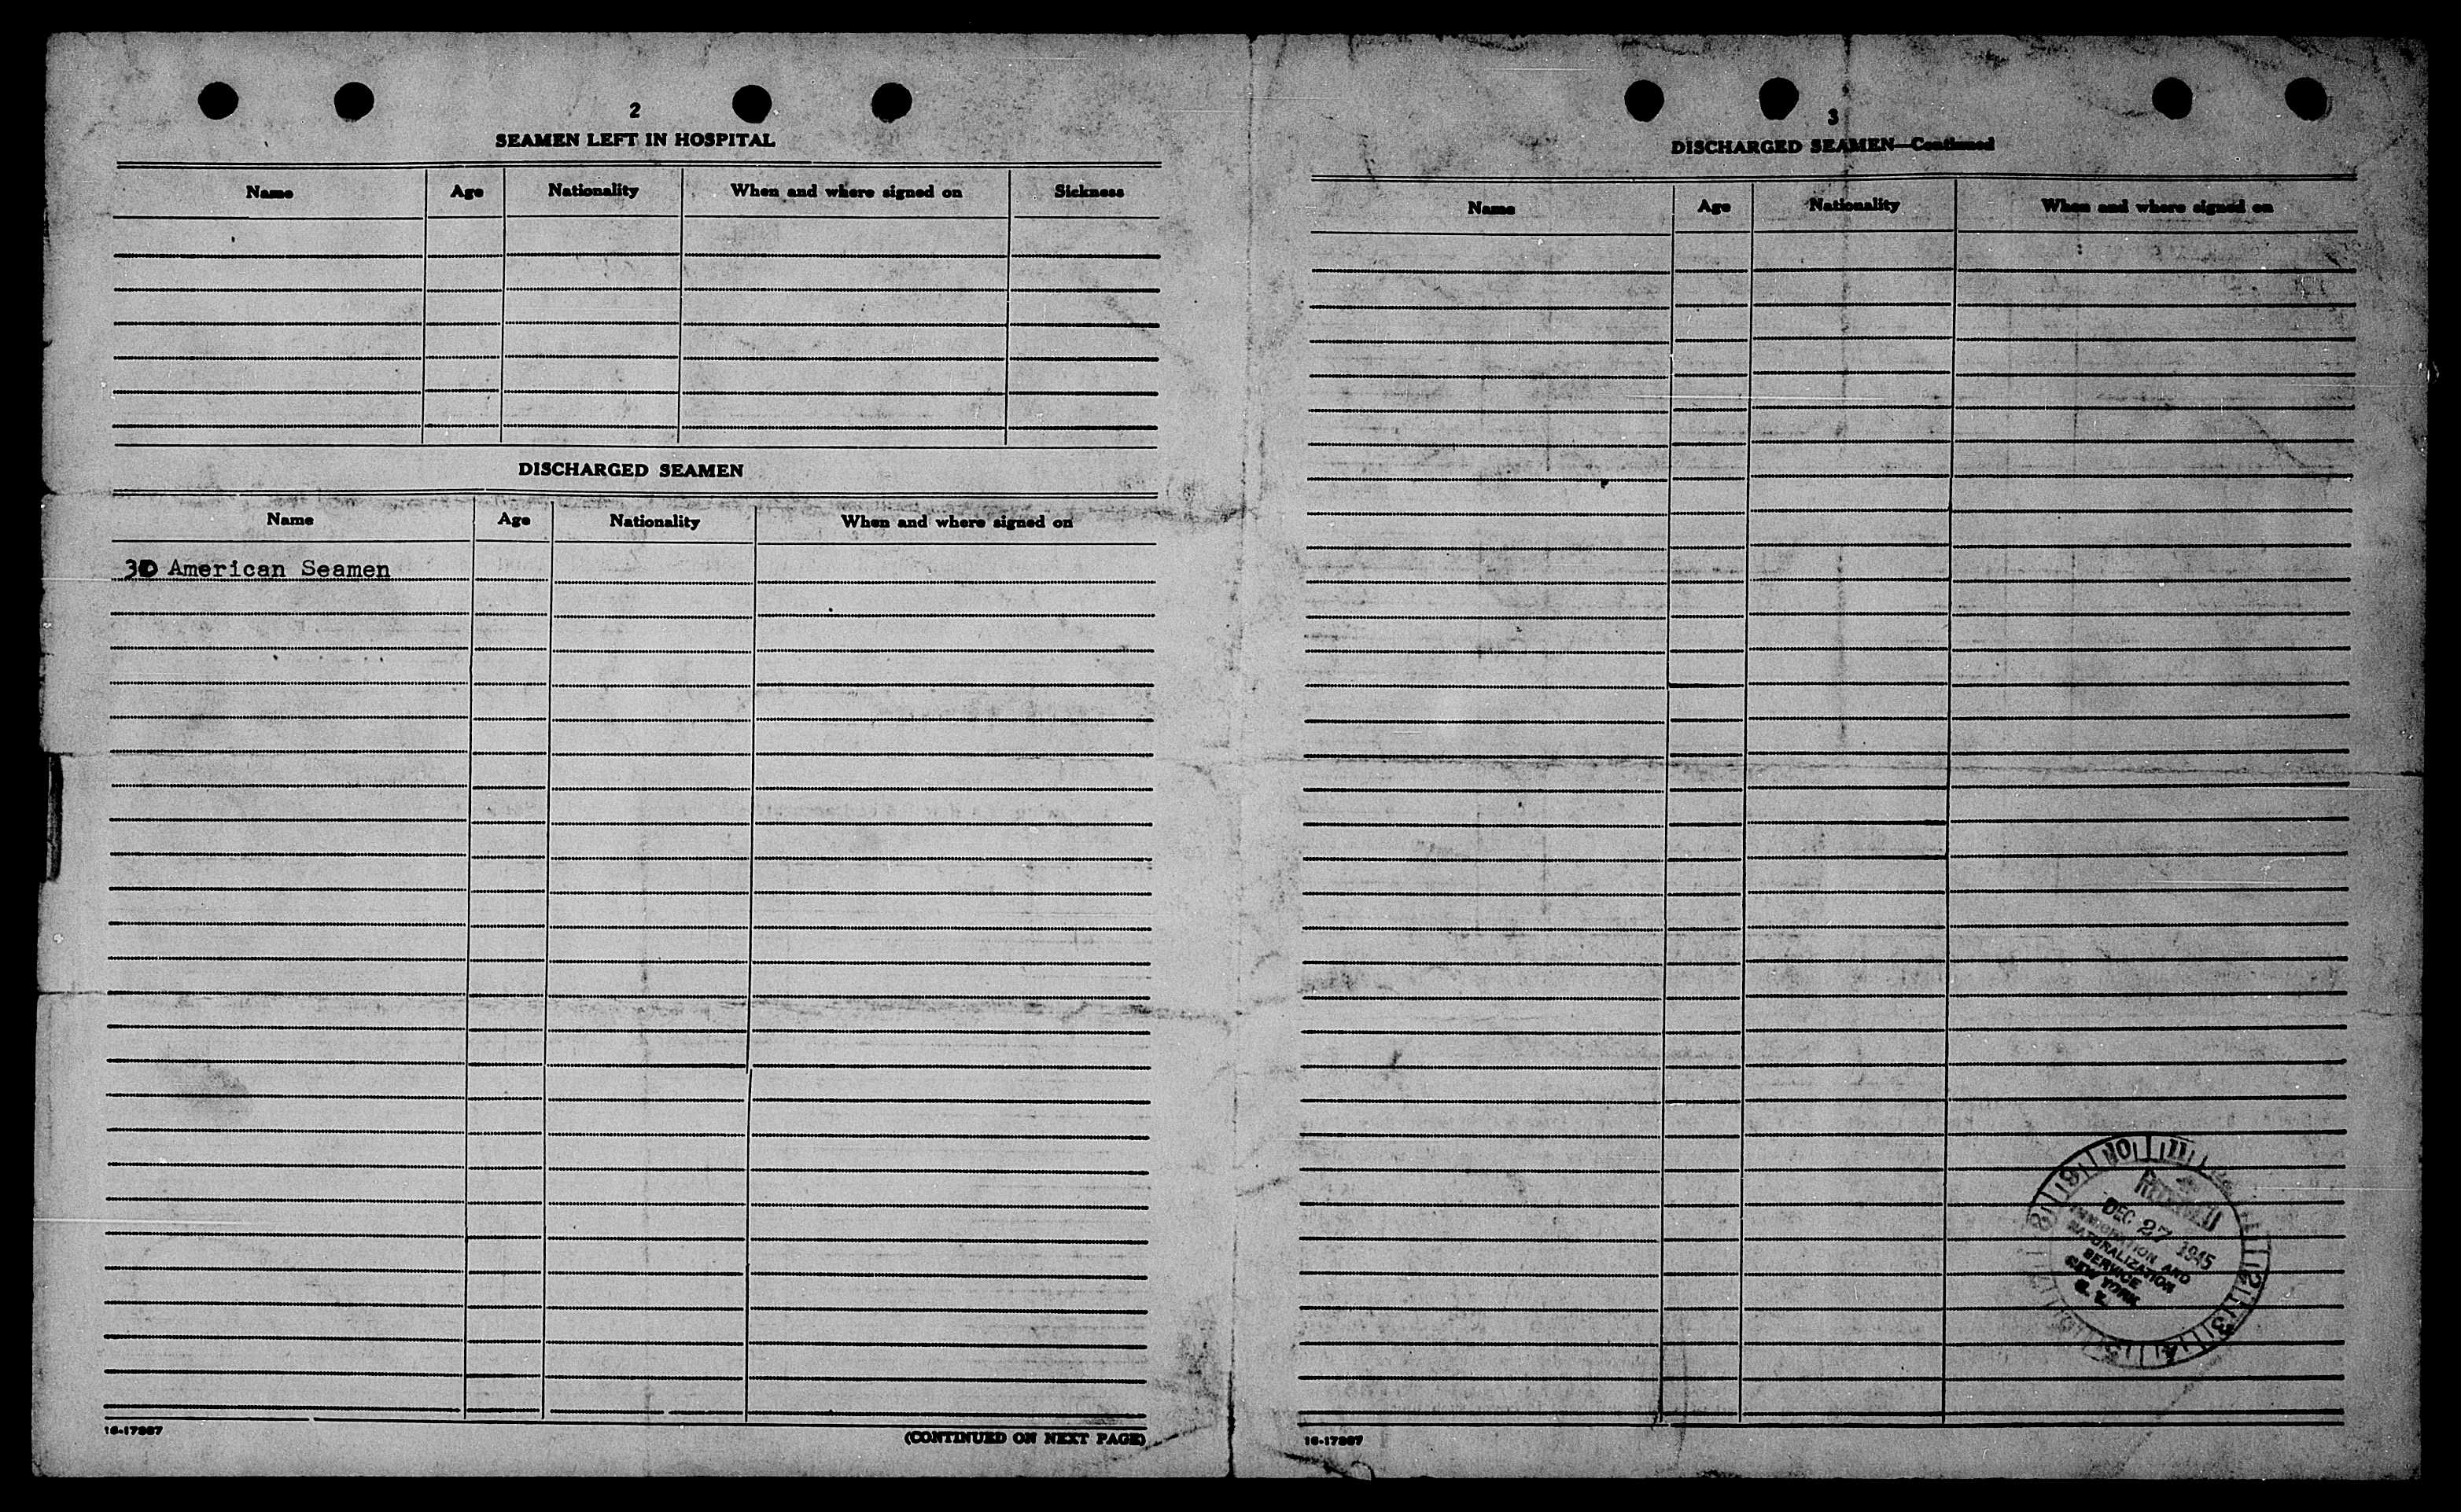 2
SEAMEN LEFT IN HOSPITAL
Name Age Nationality When and where signed on Sickness
DISCHARGED SEAMEN
Name Age Nationality When and where signed on
30 American Seamen
16-17867
(CONTINUED ON NEXT PAGE)
3
DISCHARGED SEAMEN—Continued
Name Age Nationality When and where signed on
8 9 10 11
RECEIVED
DEC 27 1945
IMMIGRATION AND
NATURALIZATION
SERVICE
NEW YORK
N. Y.
2 3 4 5
16-17867